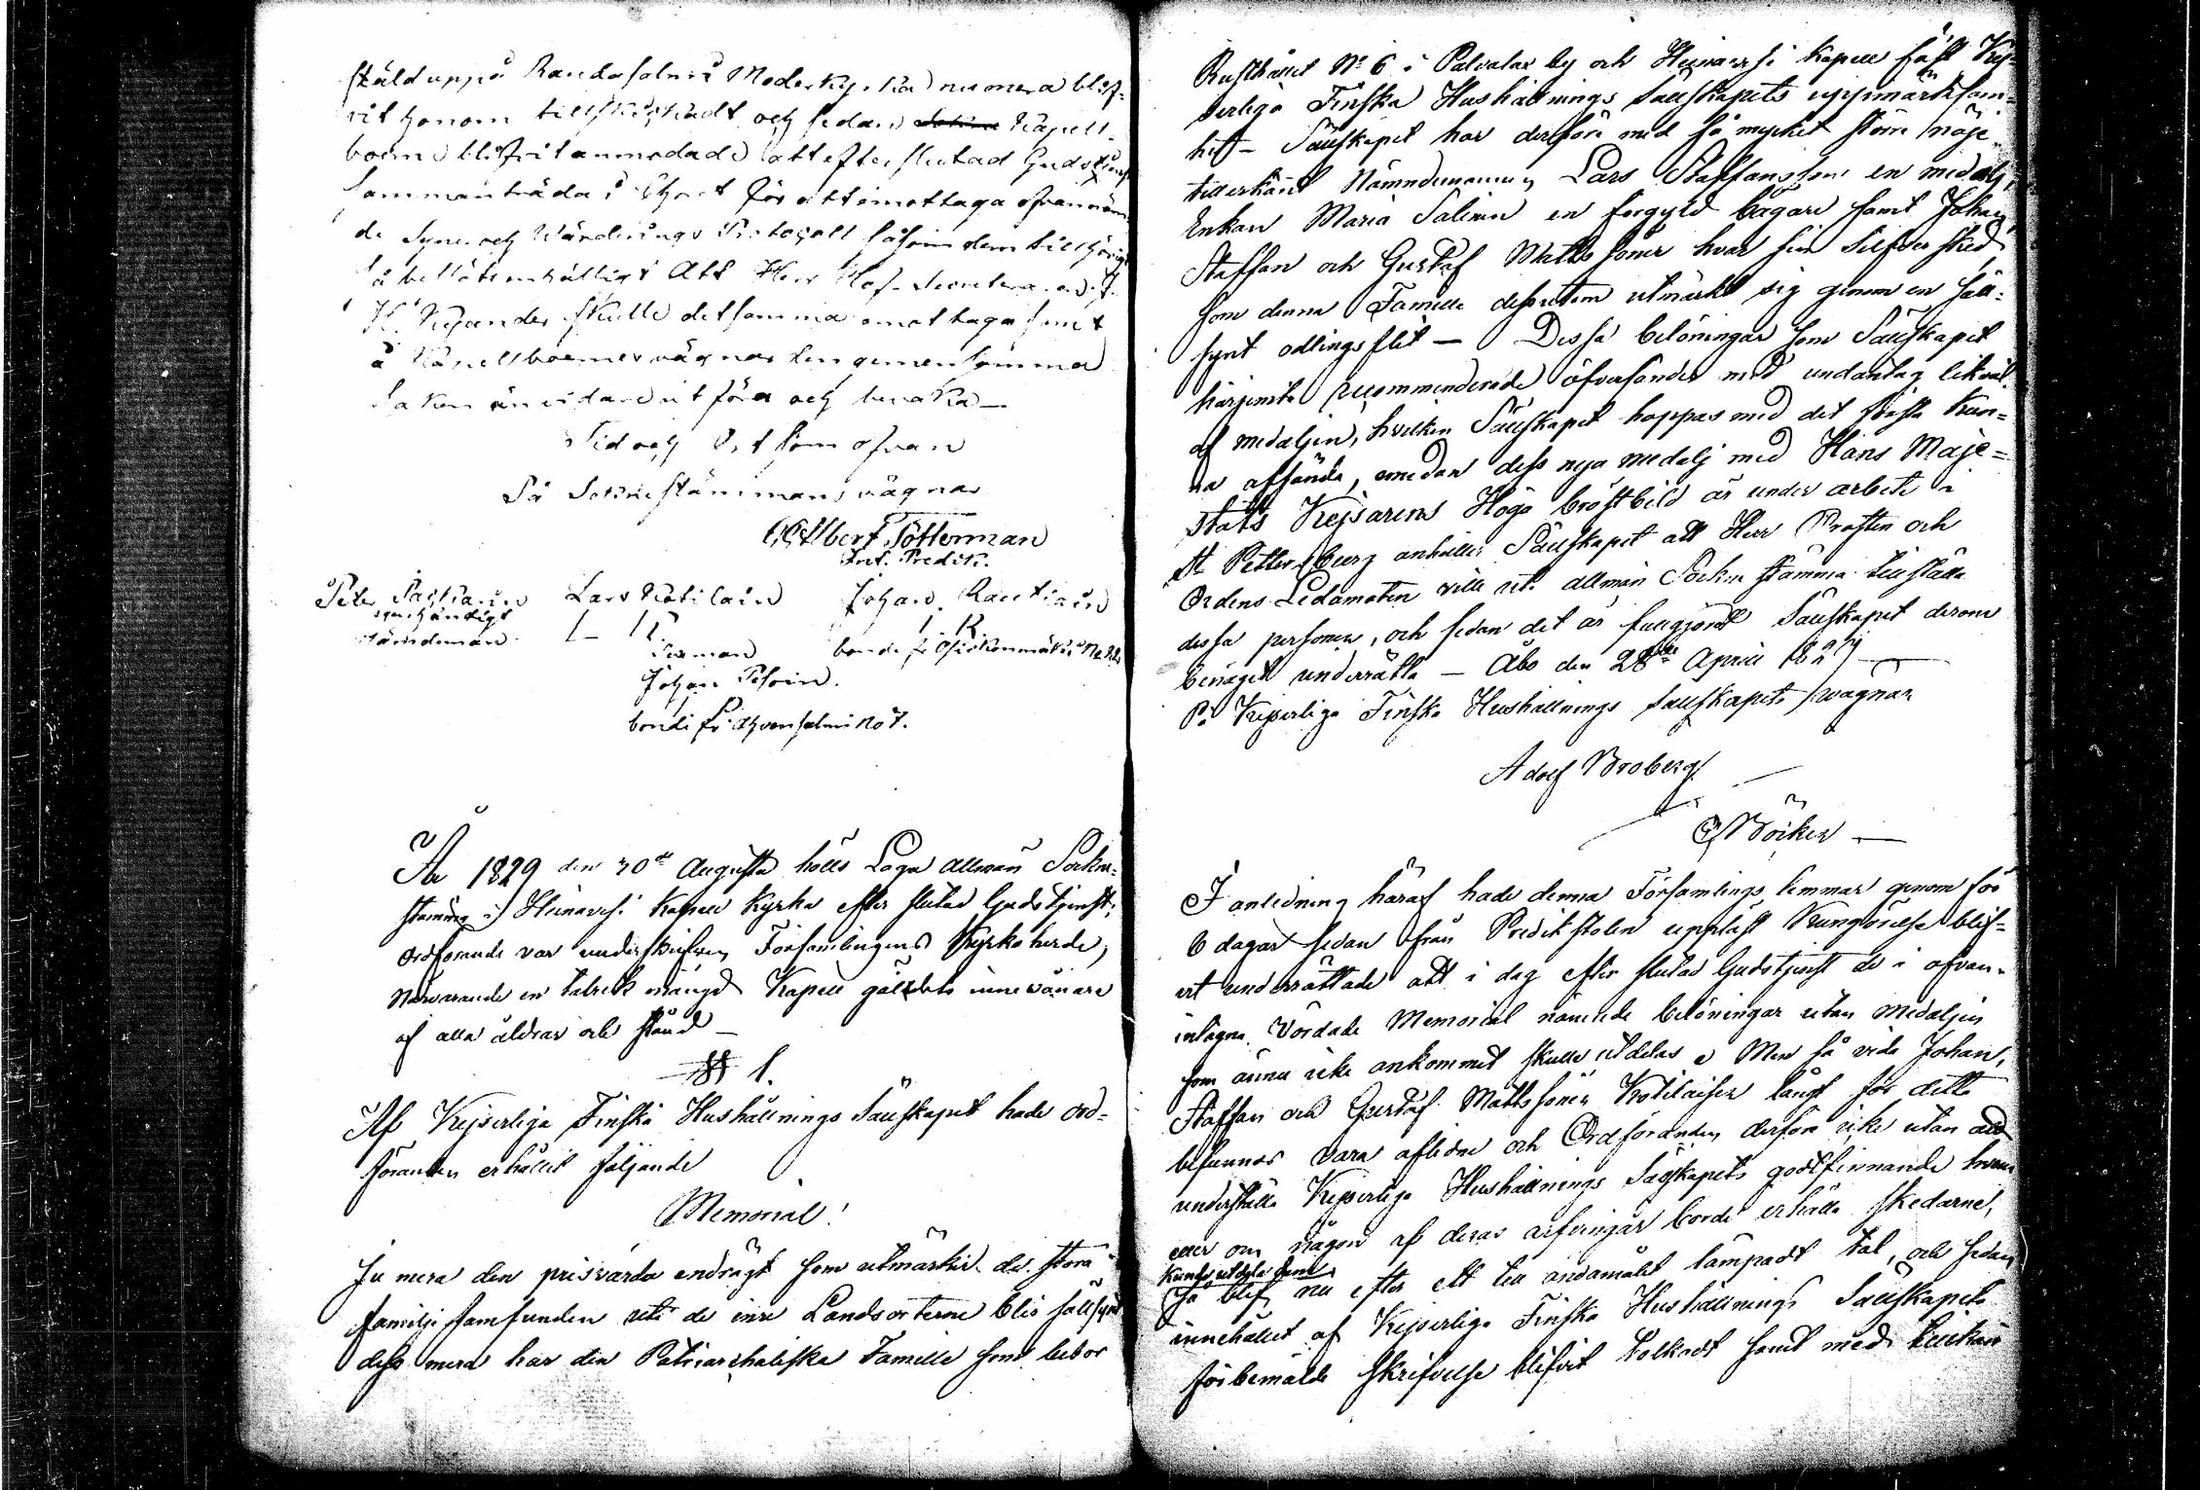 ståld uppå Randasalmi Moderkyrka numera blif-
vit honom tillskickadt och sedan Kapell-
boerne blifvit anmodade att efter slutad Gudstjenst
sammanträda i för att emottaga ofvannämn
de Syne och Värderings Protocoll såsom dem tillhörigt
så beslöts enhälligt Att Herr Hof-Secreteraren
skulle detsamma emottaga samt
å Kapellboernes vägnar den gemensamma
Saken än vidare utföra och bevaka —
Tid och Ort som ofvan
På Sockne stämmans vägnar
Albert Tötterman
Predik.
Peter Lars Kotilain Johan Rautiain
egenhändigt
nämndeman bonde fr No
Johan
bonde fr No 7.
År 1829 den 30de Augusti hölls Laga allmän Sockne-
stämma i Heinävesi Kapell Kyrka efter slutad Gudstjenst;
Ordförande var underskrifven Församlingens Kyrkoherde,
Närvarande en talrik mängd Kapell gälldets innevånare
af alla åldrar och stånd —
§ 1.
Af Kejserliga Finska Hushållnings Sällskapet hade Ord-
föranden erhållit följande
Memorial!
Ju mera den prisvärda endrägt som utmärker de stora
familje samfunden uti de inre Landsorterne blir sällsynt
dess mera har den Patriarchaliska Familie som bebor
Rusthållet No 6 i Palvalax by och Heinävesi Kapell fäst Kej-
serliga Finska Hushållnings Sällskapets uppmärksam-
het — Sällskapet har derföre med så mycket större nöje
tillerkännt Nämndemannen Lars Staffansson en medalj,
Enkan Maria Salinin en förgyld bägare samt Johan,
Staffan och Gustaf Matts söner hvar sin Silfver sked,
som denna Familie dessutom utmärkt sig genom en säll-
synt odlings flit — Dessa belöningar som Sällskapet
härjemte recommenderade öfversänder med undantag likväl
af medaljen, hvilken Sällskapet hoppas med det första kun-
na afsända, emedan dess nya medalj med Hans Maje-
stäts Kejsarens Höga bröstbild är under arbete i
St Petters burg anhåller Sällskapet att Herr Prosten och
Ordens Ledamoten ville uti allmän Sockne stämma tillställa
dessa personer, och sedan det är fullgjordt Sällskapet derom
benäget underrätta — Åbo den 28de April 1829 —
På Kejserliga Finska Hushållnings Sällskapets wägnar
Adolf Broberg
Böcker —
I anledning häraf hade denna Församlings lemmar genom för
6 dagar sedan från Predikstolen uppläst Kungörelse blif-
vit underrättade att i dag efter slutad Gudstjenst de i ofvan-
intagne Vördade Memorial nämnde belöningar utan Medaljen
som ännu icke ankommit skulle utdelas. Men så vida Johan,
Staffan och Gustaf Matts söner Kotilaiser långt för detta
befunnos vara aflidne och Ordföranden derföre icke utan att
underställa Kejserliga Hushållnings Sällskapets godtfinnande
eller om någon af deras arfvingar borde erhålla skedarne,
kunde utdela dem
Så blef nu efter ett till ändamålet lämpadt tal, och sedan
innehållet af Kejserliga Finska Hushållnings Sällskapets
förbemälde skrifvelse blifvit tolkadt samt med